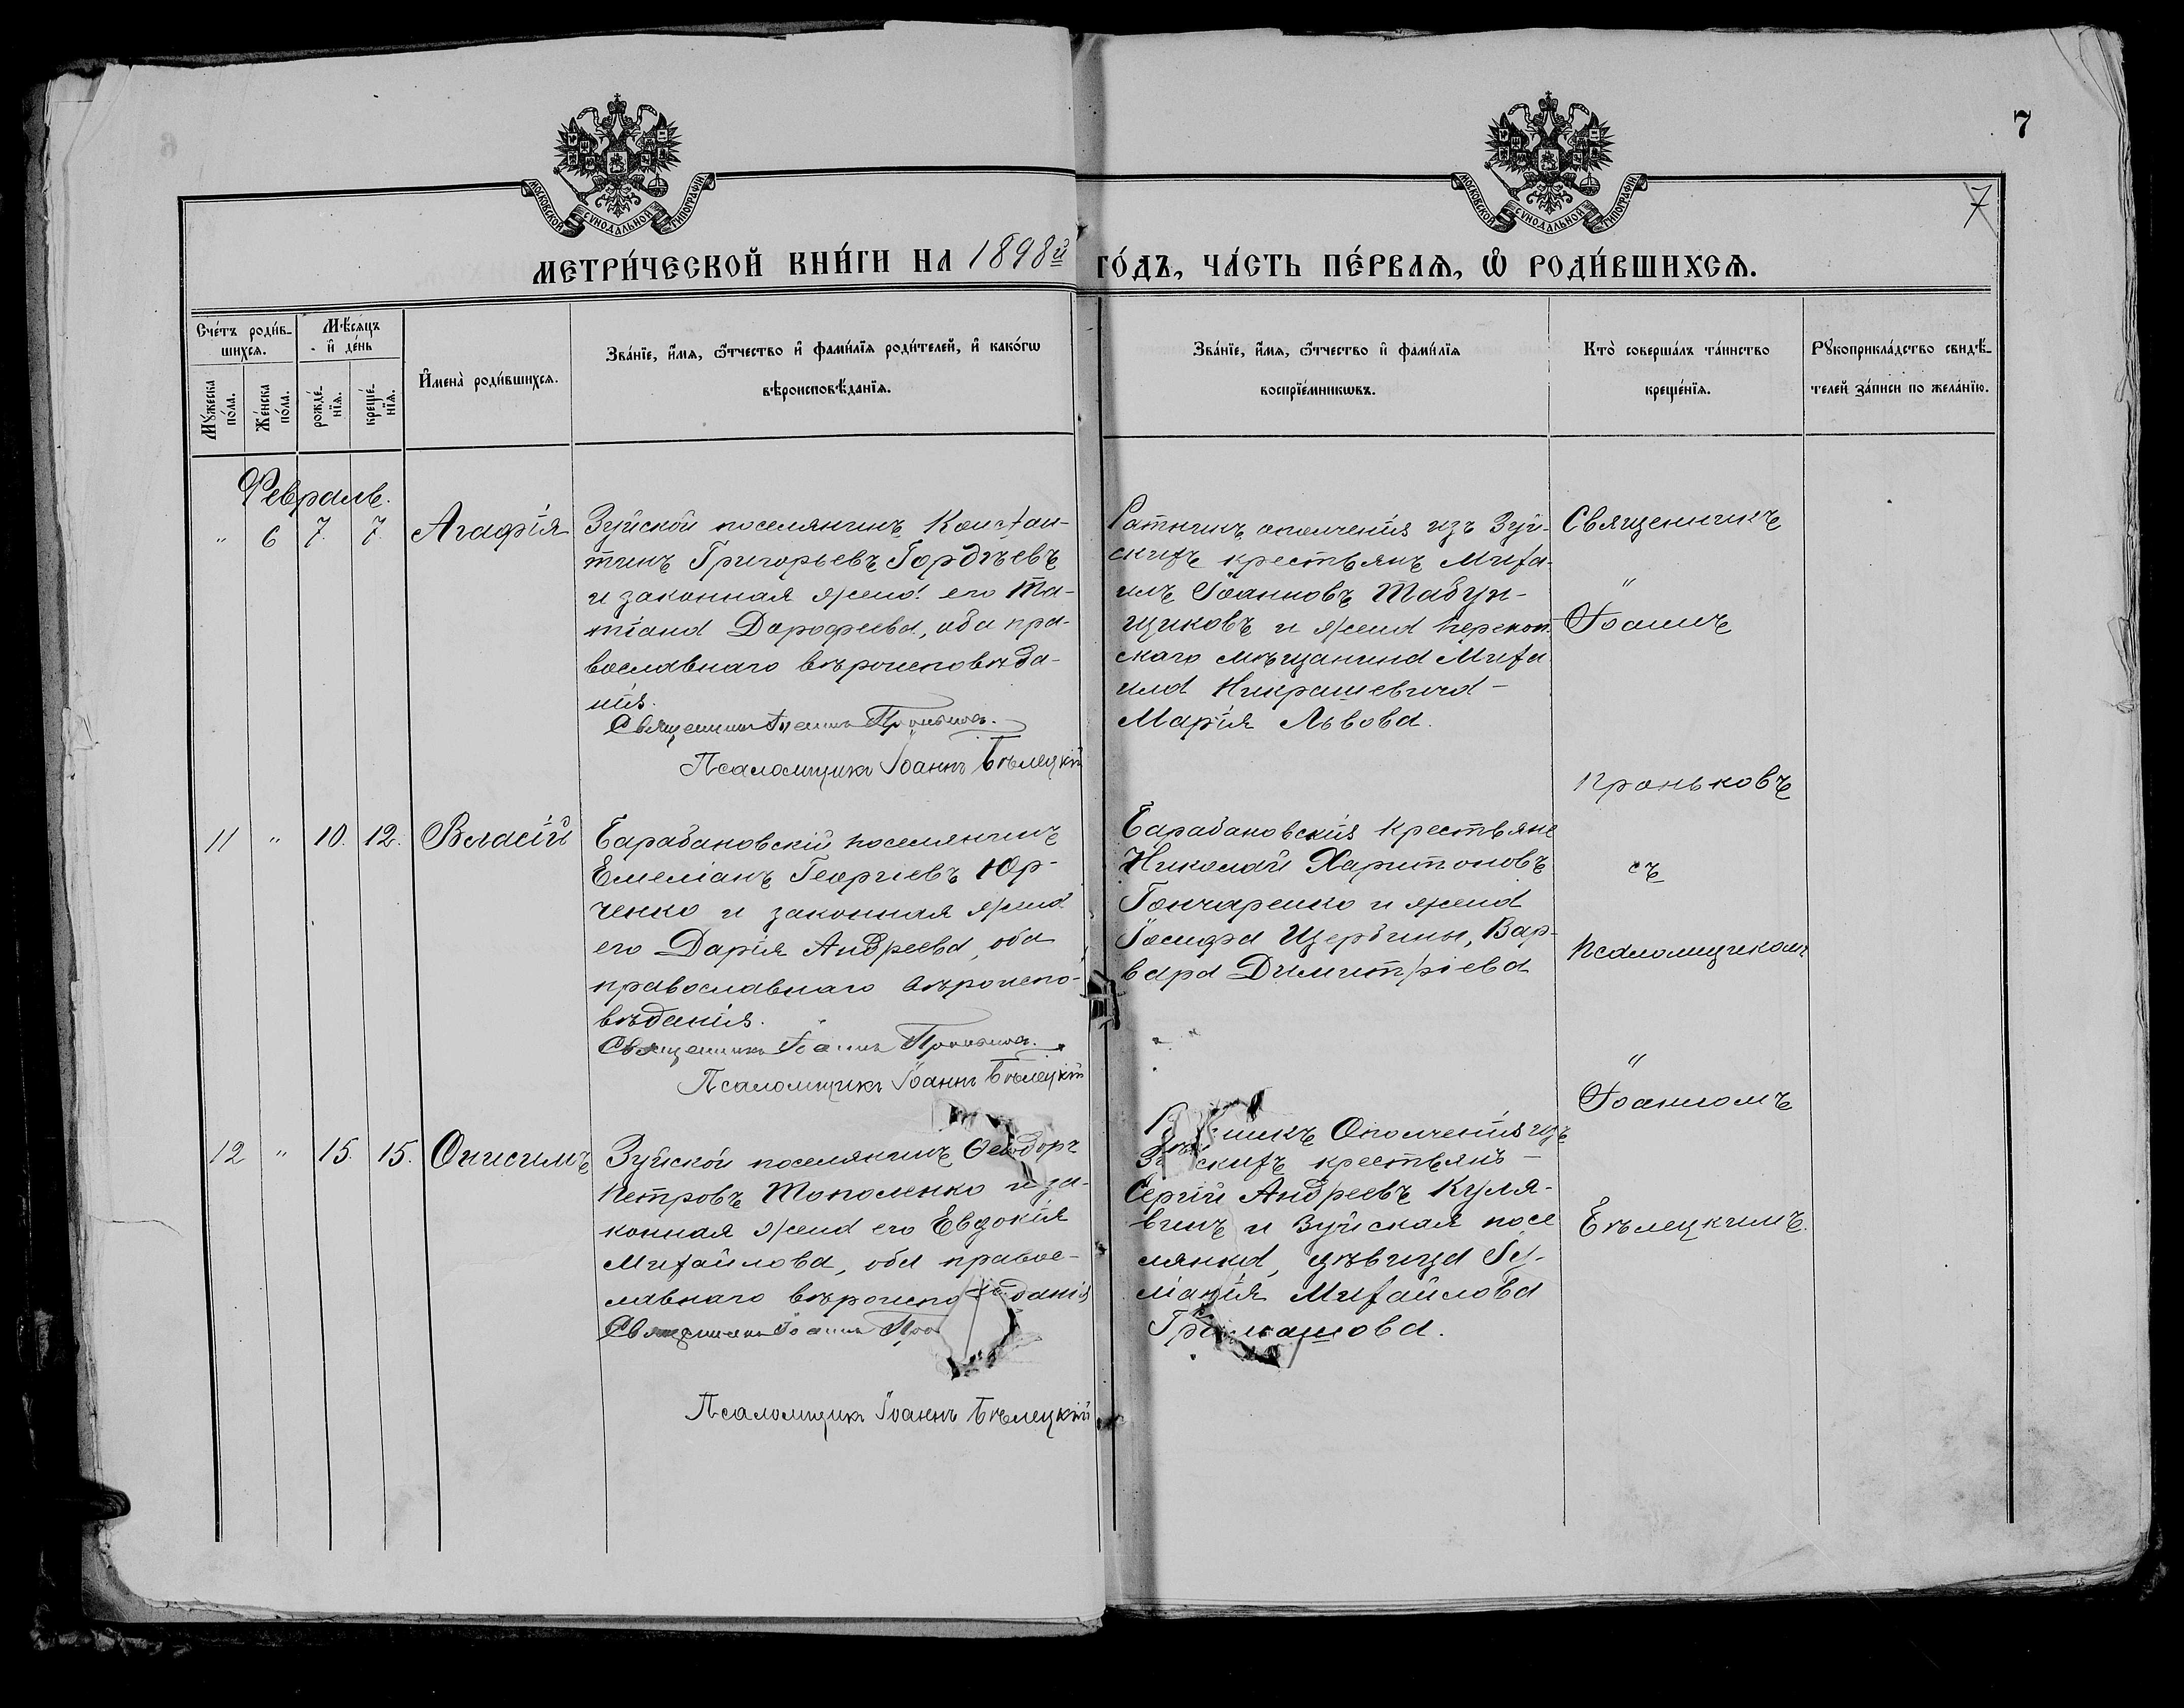 7
7
МОСКОВСКОЙ СѴНОДАЛЬНОЙ ТИПОГРАФІИ
МОСКОВСКОЙ СѴНОДАЛЬНОЙ ТИПОГРАФІИ
МЕТРИ́ЧЕСКОЙ КНИ́ГИ НА 1898й ГО́ДЪ, ЧА́СТЬ ПЕ́РВАѦ, Ѡ҆ РОДИ́ВШИХСѦ.
Сче́тъ роди́в-
шихсѧ.
Мꙋ́жеска по́ла.
Же́нска по́ла.
Мѣ́сѧцъ
и҆ де́нь
рожде́-
нїѧ.
креще́-
нїѧ.
И҆мена̀ роди́вшихсѧ.
Зва́нїе, и҆́мѧ, ѻ҆́тчество и҆ фами́лїѧ роди́телей, и҆ како́гѡ
вѣроисповѣ́данїѧ.
Зва́нїе, и҆́мѧ, ѻ҆́тчество и҆ фами́лїѧ
воспрїе́мникѡвъ.
Кто̀ соверша́лъ та́инство
креще́нїѧ.
Рꙋкоприкла́дство свидѣ́-
телей за́писи по жела́нїю.
Февраль.
" 6 7. 7. Агафія
Зуйской поселянинъ Констан-
тинъ Григорьевъ Гордѣевъ
и законная жена его Та-
тіана Дорофеева, оба пра-
вославнаго вѣроисповѣда-
нія.
Священникъ Іоаннъ Проньковъ.
Псаломщикъ Іоаннъ Бѣлецкій
Ратникъ ополченія изъ Зуй-
скихъ крестьянъ Миха-
илъ Іоанновъ Табун-
щиковъ и жена Перекоп-
скаго мѣщанина Миха
ила Никрашевича -
Марія Львова.
Священникъ
"
Іоаннъ
Проньковъ
съ
Псаломщикомъ
"
Іоанномъ
Бѣлецкимъ.
11 " 10. 12. Власій
Барабановскій поселянинъ
Емеліанъ Георгіевъ Юр-
ченко и законная жена
его Дарія Андреева, оба
православнаго вѣроиспо-
вѣданія.
Священникъ Іоаннъ Проньковъ.
Псаломщикъ Іоаннъ Бѣлецкій
Барабановскія крестьяне
Николай Харитоновъ
Гончаренко и жена
Іосифа Щербины, Вар-
вара Димитріева
12 " 15. 15. Онисимъ
Зуйской поселянинъ Ѳеодоръ
Петровъ Тополенко и за-
конная жена его Евдокія
Михайлова, оба правос-
лавнаго вѣроиспо данія
Священникъ Іоаннъ Про
Псаломщикъ Іоаннъ Бѣлецкій
Р никъ Ополченія изъ
Зу скихъ крестьянъ -
Сергій Андреевъ Куля-
винъ и Зуйская посе
лянка, дѣвица
Михайлова